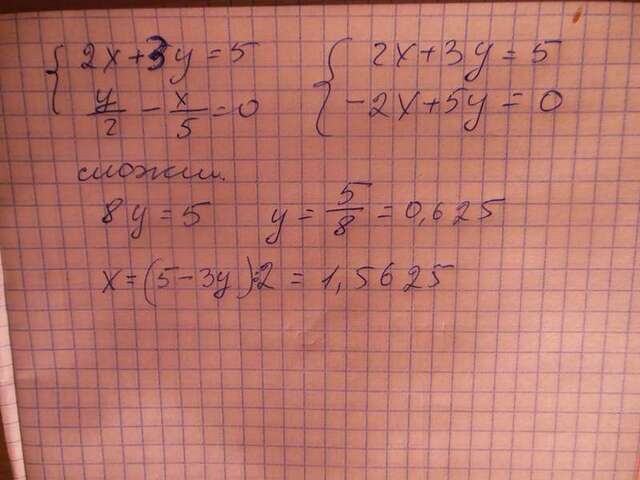 2x+3y=5 2x+3y=5
y/2 - x/5 = 0 -2x+5y=0
сложим.
8y=5 y=5/8=0,625
x=(5-3y):2=1,5625